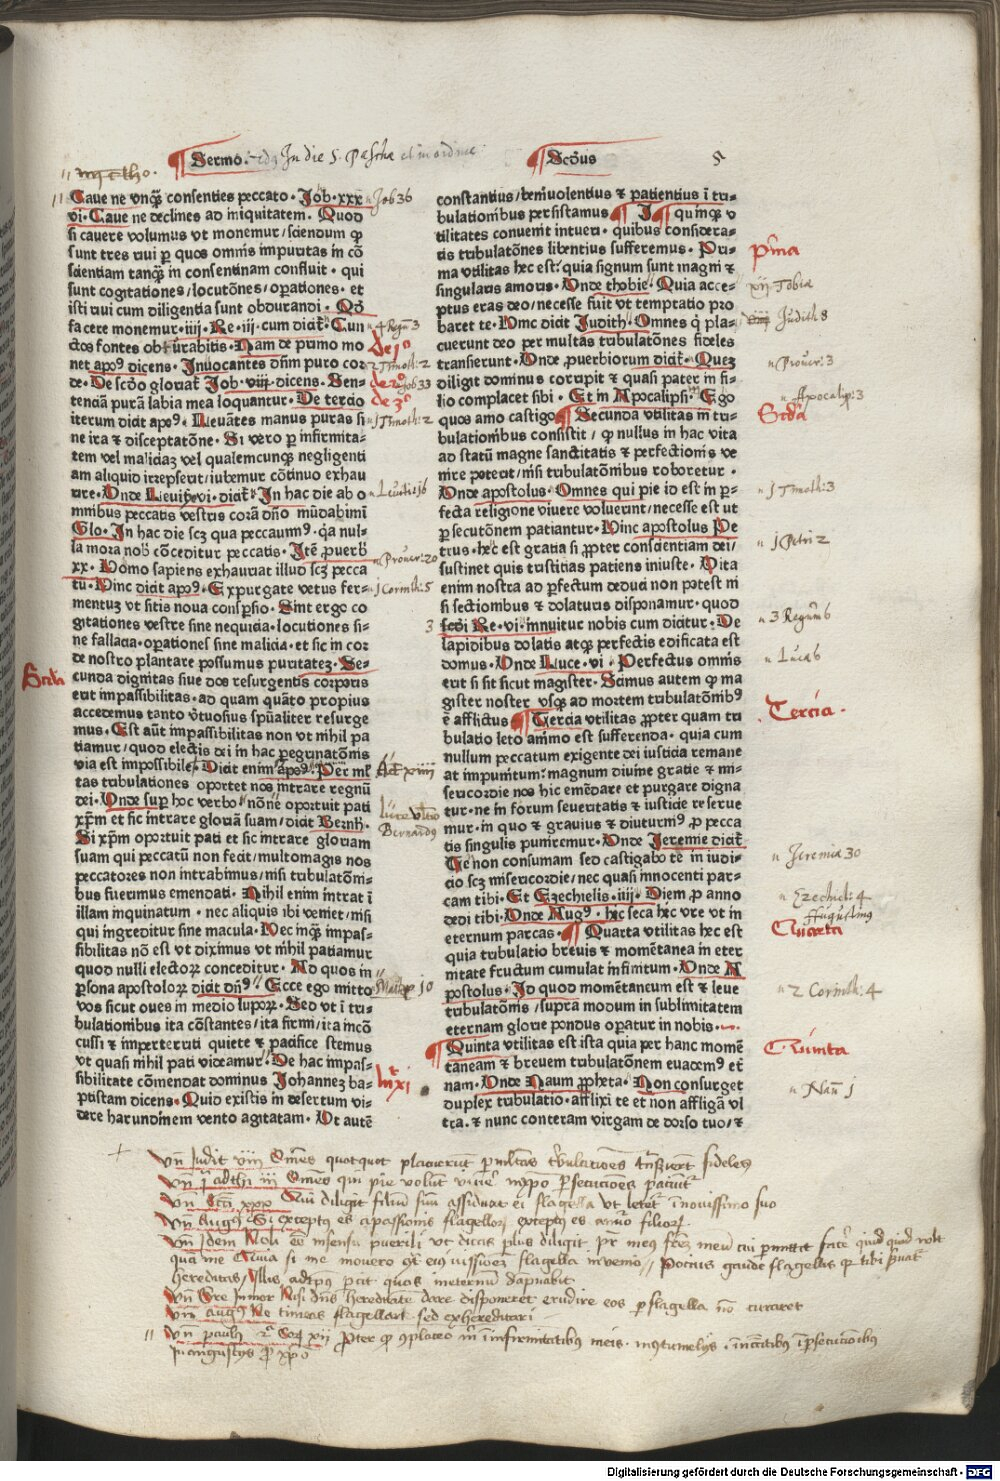 Sermo. In die S. Pasche et in ordine
Scďus 5
Caue ne vnqȝ consenties peccato. Job.xxx
vi. Caue ne declines ad iniquitatem. Quod
si cauere volumus vt omnem/sciendum ꝙ
sunt tres riui per quos omnis impuritas in cō
scientiam tanqȝ in consentinam confluit. qui
sunt cogitationes/locutōnes/operationes. et
isti riui cum diligentia sunt obdurandi. Qđ
facere monemur.iiij. Re.iij.cum dicať. Cun
ctos fontes obturabitis. Nam de primo mo
net apoꝰ dicens. Inuocantes dñm puro cor
de. De scďo gloriať Job.viij.dicens. Sen-
tenciā purā labia mea loquantur. De tercio
iterum dicit apoꝰ. Leuātes manus puras si
ne ira & disceptatōne. Si vero per infirmita-
tem vel maliciaȝ vel qualemcunqȝ negligenti
am aliquid irrepserit/iubemur cōtinuo exhau
rire. Unde Leuiť.vi.dicať. In hac die ab o
mnibus peccatis vestris corā dño mūdabimī
Glo. In hac die scȝ qua peccaumꝰ. qa nul-
la mora nob cōceditur peccatis. Itē prouerƀ
xx. Homo sapiens exhauriat illud scȝ pecca
tū. Hinc dicit apoꝰ. Expurgate vetus fer-
mentuȝ vt sitis noua conspersio. Sint ergo co
gitationes vestre sine nequicia. locutiones si-
ne fallacia. operationes sine malicia. et sic in cor
de nostro plantare possumus puritateȝ. Se-
cunda dignitas siue dos resurgentis corporis
erit impassibilitas. ad quam quāto propius
accedemus tanto vtuosius spūaliter resurge
mus. Est aūt impassibilitas non vt nihil pa
tiamur/quod electis dei in hac peregrinatōnis
via est impossibile. Dicit enim apoꝰ. Per ml
tas tribulationes oportet nos intrare regnū
dei. Unde super hoc verbo. nōne oportuit pati
xpm et sic intrare gloriā suam/dicit Bernh.
Si xpm oportuit pati et sic intrare gloriam
suam qui peccatū non fecit/multomagis nos
peccatores non intrabimus/nisi tribulatōni-
bus fuerimus emendati. Nihil enim intrat i
illam inquinatum. nec aliquis ibi veniet/nisi
qui ingreditur sine macula. Nec inqȝ impas-
sibilitas nō est vt diximus vt nihil patiamur
quod nulli electorꝝ conceditur. Ad quos in
persona apostolorꝝ dicit dñꝰ. Ecce ego mitto
vos sicut oues in medio luporꝝ. Sed vt i tri-
bulationibus ita cōstantes/ita firmi/ita incō
cussi & imperterriti quiete & pacifice stemus
vt quasi nihil pati videamur. De hac impas-
sibilitate cōmendat dominus Johanneȝ ba-
ptistam dicens. Quid existis in desertum vi-
dere harundinem vento agitatam. Ut autē
constantius/beniuolentius & patientius i tri-
bulationibus persistamus
tilitates conuenit intueri. quibus considera-
tis tribulatōnes libentius sufferemus. Pri-
ma vtilitas hec est. quia signum sunt magni &
singularis amoris. Unde thobie. Quia acce-
ptus eras deo/necesse fuit vt temptatio pro
baret te. Hinc dicit Judith. Omnes q̄ pla-
cuerunt deo per multas tribulatōnes fideles
transierunt. Unde prouerbiorum dicať. Quez
diligit dominus corripit & quasi pater in fi-
lio complacet sibi. Et in Apocalipsi. Ego
quos amo castigo Secunda vtilitas in tri-
bulationibus consistit/ꝙ nullus in hac vita
ad statū magne sanctitatis & perfectionis ve
nire poterit/nisi tribulatōnibus roboretur.
Unde apostolus. Omnes qui pie id est in per-
fecta religione viuere voluerint/necesse est vt
persecutōnem patiantur. Hinc apostolus Pe
trus. hec est gratia si propter conscientiam dei/
sustinet quis tristitias patiens iniuste. Vita
enim nostra ad perfectum deduci non potest ni
si sectionibus & dolaturis disponamur. quod
Re.vi.innuitur nobis cum dicitur. De
lapidibus dolatis atqȝ perfectis edificata est
domus. Unde Luce.vi. Perfectus omnis
erit si sit sicut magister. Scimus autem ꝙ ma
gister noster vsqȝ ad mortem tribulatōnibꝰ
ē afflictus Tercia vtilitas propter quam tri
bulatio leto animo est sufferenda. quia cum
nullum peccatum exigente dei iusticia remane
at impunitum. magnum diuine gratie & mi-
sericordie nos hic emēdare et purgare digna
tur. ne in forum seueritatis & iusticie reserue
mur. in quo & grauius & diuturniꝰ pro pecca
tis singulis puniremur. Unde Jeremie dicať
Te non consumam sed castigabo te in iudi-
cio scȝ misericordie/nec quasi innocenti par-
cam tibi. Et Ezechielis.iiij. Diem pro anno
dedi tibi. Unde Augꝰ. hic seca hic vre vt in
eternum parcas. Quarta vtilitas hec est
quia tribulatio breuis & momētanea in eter
nitate fructum cumulat infinitum. Unde A
postolus. Id quod momētaneum est & leue
tribulatōnis/supra modum in sublimitatem
eternam glorie pondus operatur in nobis.
Quinta vtilitas est ista quia per hanc momē
taneam & breuem tribulatōnem euademꝰ et
nam. Unde Naum propheta. Non consurget
duplex tribulatio. afflixi te et non affligā vl
tra. & nunc conteram virgam de dorso tuo/&
Job 36
4 Regū 3
de 1º
2 Timoth: 2
de 2º
Job 33
de 3º
1 Timoth: 2
Leuit: 16
Prouer: 20
1 Corinth: 5
3
Scďa
Act xiiii
Luce vltio
Bernardus
Math 10
Pma
xij Tobie
Judith 8
Prouer: 3
Apocalip: 3
Scďa
1 Timoth: 3
1 Petri 2
3 Regum 6
Luc 6
Tercia.
Jeremie 30
Ezechiel: 4
Augustinus
Quarta
2 Corinth: 4
Quinta
Naū 1
Vñ Judit viii Omēs quotquot placuerūt p multas tribulationes trāsierūt fideles
Vñ scďa ad thi iii Omēs qui pie volūt viuere in xpo persecutiones patiunt
Vñ Ecci xxx Qui diligit filium suū assiduat ei flagella vt letetr in nouissimo suo
Vñ Augꝰ Si exceptus es a passionis flagelloꝝ exceptus es a nūo filioꝝ
Vñ Idem Noli esse insensu puerili vt dicas plus diligit pr meus frem meū cui permittit facere quidquid vult
qua me Quia si me mouero contra eius iussionem flagella inuenio Potius gaude flagellis qr tibi seruat
hereditas/Illis ad tempus parcit quos ineternū dampnabit
Vñ Gre in mor Nisi dñs hereditatem dare disponeret erudire eos p flagella nō curaret
Vñ Augꝰ Ne timeas flagellari sed exhereditari
Vñ paulꝰ 2ª Cor xii Propter quod placeo mihi in infirmitatibus meis. in contumeliis. in necessitatibus in persecutionibus
In angustiis pro xpo
Digitalisierung gefördert durch die Deutsche Forschungsgemeinschaft - DFG